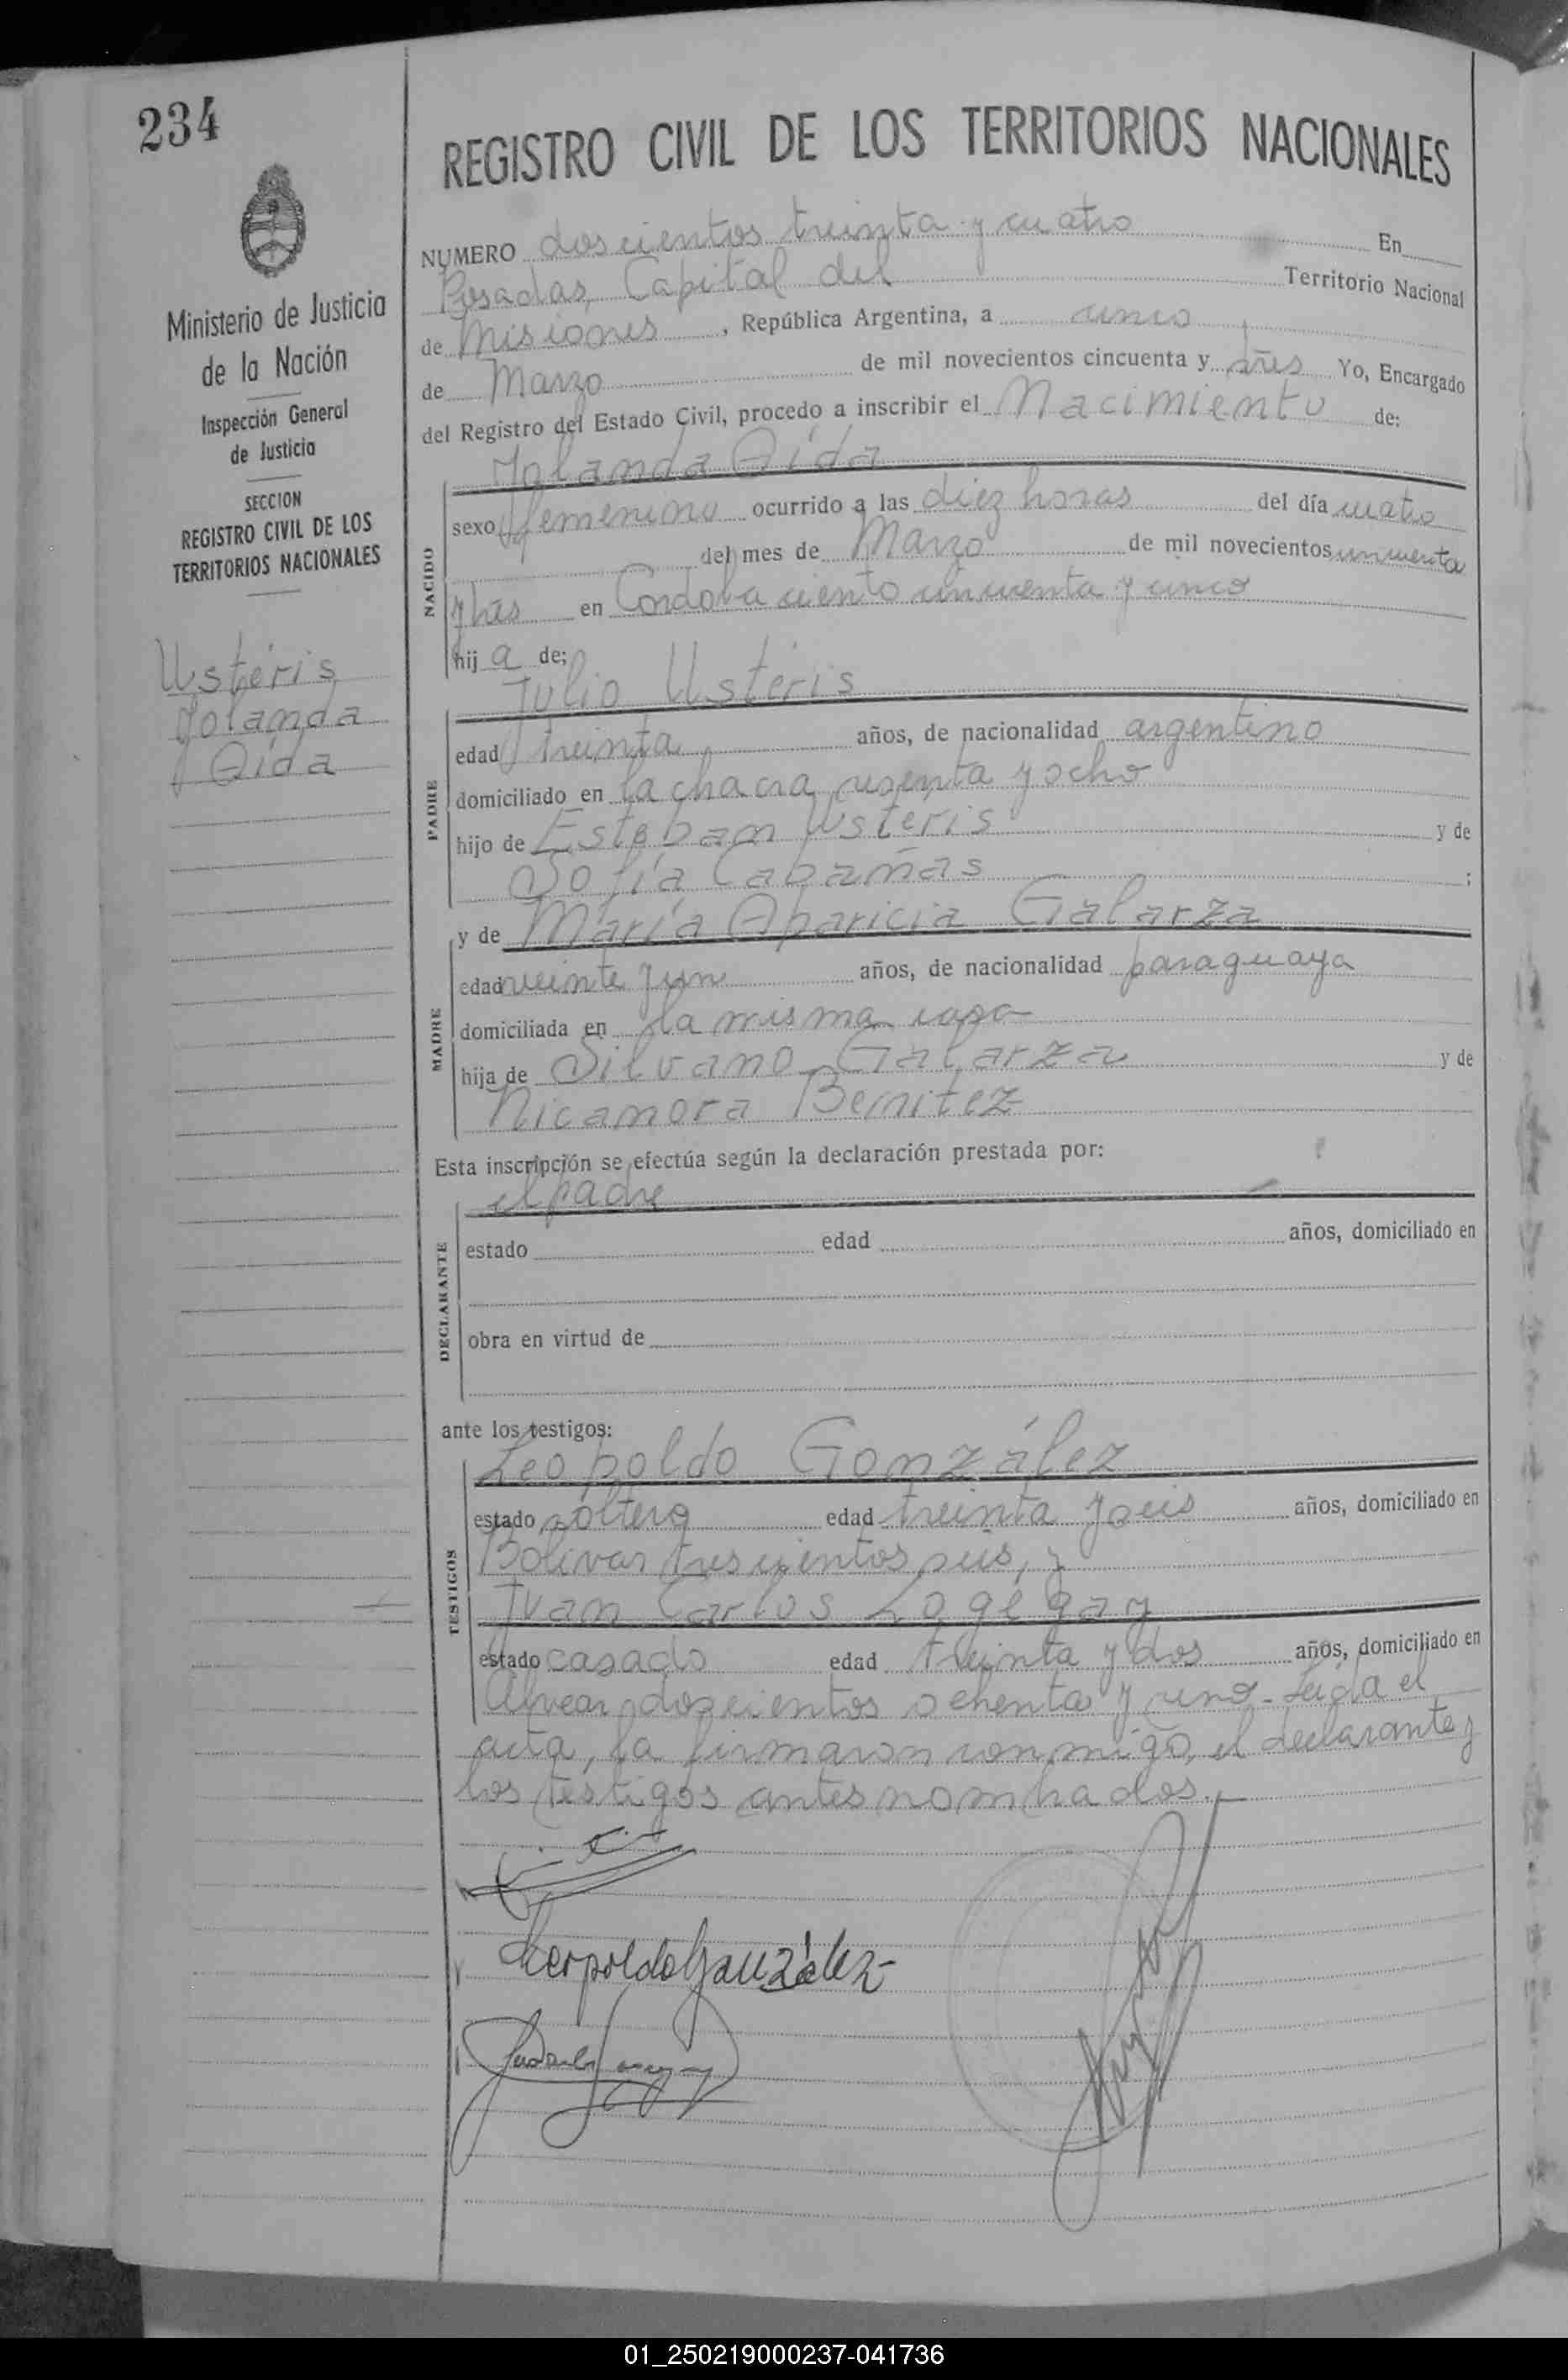 234
Ministerio de Justicia
de la Nación
Inspección General
de Justicia
SECCION
REGISTRO CIVIL DE LOS
TERRITORIOS NACIONALES
Usteris
Yolanda
Aída
REGISTRO CIVIL DE LOS TERRITORIOS NACIONALES
NUMERO doscientos treinta y cuatro En
Posadas, Capital del Territorio Nacional
de Misiones, República Argentina, a cinco
de Marzo de mil novecientos cincuenta y tres Yo, Encargado
del Registro del Estado Civil, procedo a inscribir el Nacimiento de:
Yolanda Aída
NACIDO
sexo femenino ocurrido a las diez horas del día cuatro
del mes de Marzo de mil novecientos cincuenta
y tres en Cordoba ciento cincuenta y cinco
hij a de;
Julio Usteris
PADRE
edad treinta años, de nacionalidad argentino
domiciliado en la chacra sesenta y ocho
hijo de Esteban Usteris y de
Sofía Cabañas ;
y de María Aparicia Galarza
MADRE
edad veinte y un años, de nacionalidad paraguaya
domiciliada en la misma casa
hija de Silvano Galarza y de
Nicanora Benitez
Esta inscripción se efectúa según la declaración prestada por:
el padre
DECLARANTE
estado edad años, domiciliado en
obra en virtud de
ante los testigos:
Leopoldo González
TESTIGOS
estado soltero edad treinta y seis años, domiciliado en
Bolivar trescientos seis, y
Juan Carlos
estado casado edad treinta y dos años, domiciliado en
Alvear, doscientos ochenta y uno. Leída el
acta, la firmaron conmigo, el declarante y
los testigos antes nombrados.
Leopoldo González
01_250219000237-041736